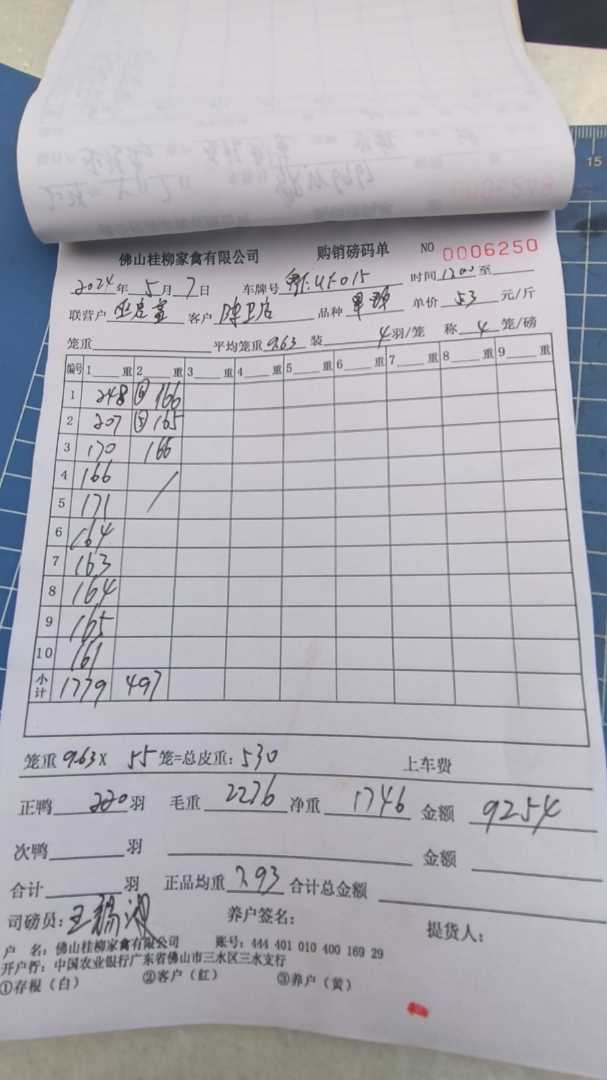 佛山桂柳家禽有限公司 购销磅码单 NO 0006250
2024年 5月 7日 车牌号 F·UF015 时间 1200 至
联营户 客户 陈卫 品种 单价 53 元/斤
笼重 平均笼重 9.63 装 4 羽/笼 称 4 笼/磅
编号 1 重 2 重 3 重 4 重 5 重 6 重 7 重 8 重 9 重
1 248 ⑥ 166
2 207 ⑤ 165
3 170 166
4 166
5 171
6 164
7 163
8 164
9 165
10 161
小计 1779 497
笼重 9.63 X 55 笼=总皮重: 530 上车费
正鸭 220 羽 毛重 2276 净重 1746 金额 9254
次鸭 羽 金额
合计 羽 正品均重 7.93 合计总金额
司磅员: 王 养户签名: 提货人:
户 名: 佛山桂柳家禽有限公司 账号: 444 401 010 400 169 29
开户行: 中国农业银行广东省佛山市三水区三水支行
①存根（白） ②客户（红） ③养户（黄）
15